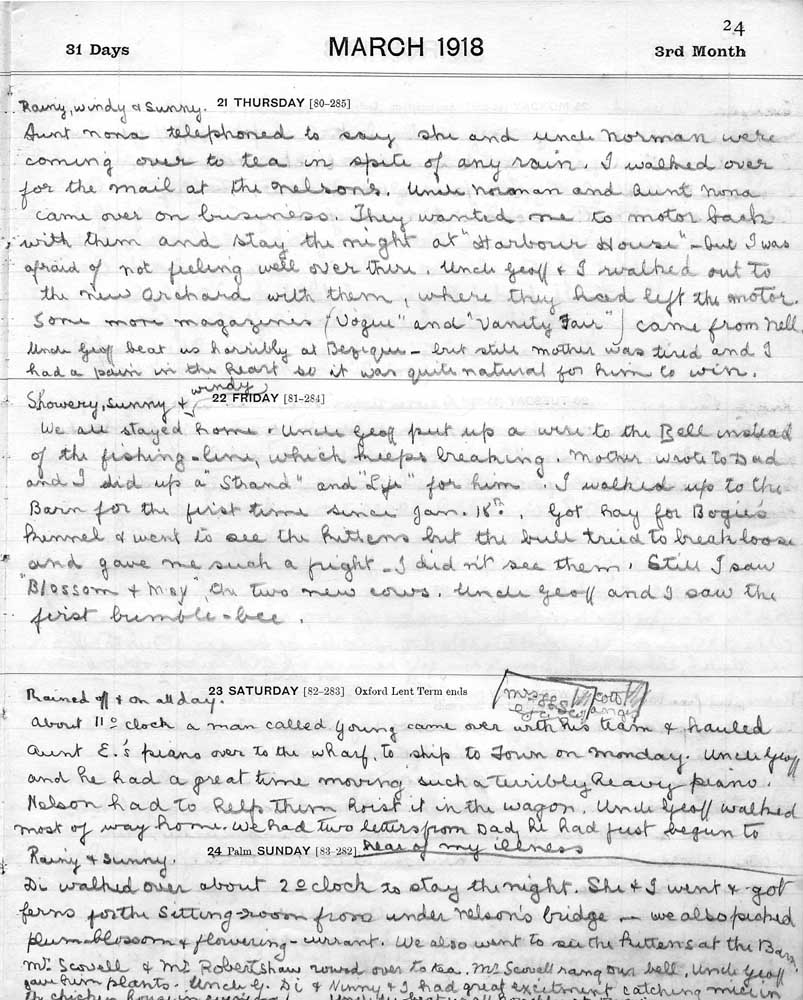 24
31 Days MARCH 1918 3rd Month
Rainy, windy & sunny. 21 THURSDAY [80-285]
Aunt Nona telephoned to say she and uncle Norman were
coming over to tea in spite of any rain. I walked over
for the mail at the Nelsons. Uncle Norman and Aunt Nona
came over on business. They wanted me to motor back
with them and stay the night at "Harbour House" - but I was
afraid of not feeling well over there. Uncle Geoff & I walked out to
the new Orchard with them, where they had left the motor.
Some more magazines ("Vogue" and "Vanity Fair") came from Nell.
Uncle Geoff beat us horribly at Bezique - but still mother was tired and I
had a pain in the heart so it was quite natural for him to win.
Showery, sunny & windy 22 FRIDAY [81-284]
We all stayed home. Uncle Geoff put up a wire to the Bell instead
of the fishing-line, which keeps breaking. Mother wrote to Dad
and I did up a "Strand" and "Life" for him. I walked up to the
Barn for the first time since Jan. 18th. Got hay for Bogie's
kennel & went to see the kittens but the bull tried to break loose
and gave me such a fright - I didn't see them. Still I saw
"Blossom & May", the two new cows. Uncle Geoff and I saw the
first bumble-bee.
Rained off & on all day. 23 SATURDAY [82-283] Oxford Lent Term ends
About 11 o'clock a man called Young came over with his team & hauled
Aunt E.'s piano over to the wharf, to ship to Town on Monday. Uncle Geoff
and he had a great time moving such a terribly heavy piano.
Nelson had to help them hoist it in the wagon. Uncle Geoff walked
most of way home. We had two letters from Dad, he had just begun to
hear of my illness
Rainy & sunny. 24 Palm SUNDAY [83-282]
Di walked over about 2 o'clock to stay the night. She & I went & got
ferns for the Sitting-room from under Nelson's bridge - we also picked
plumblossom & flowering-currant. We also went to see the kittens at the Barn.
Mr Scovell & Mr Robertshaw rowed over to tea. Mr Scovell rang our bell, Uncle Geoff
gave him plants. Uncle G. Di & Nunny & I had great excitment catching mice in
the chicken house